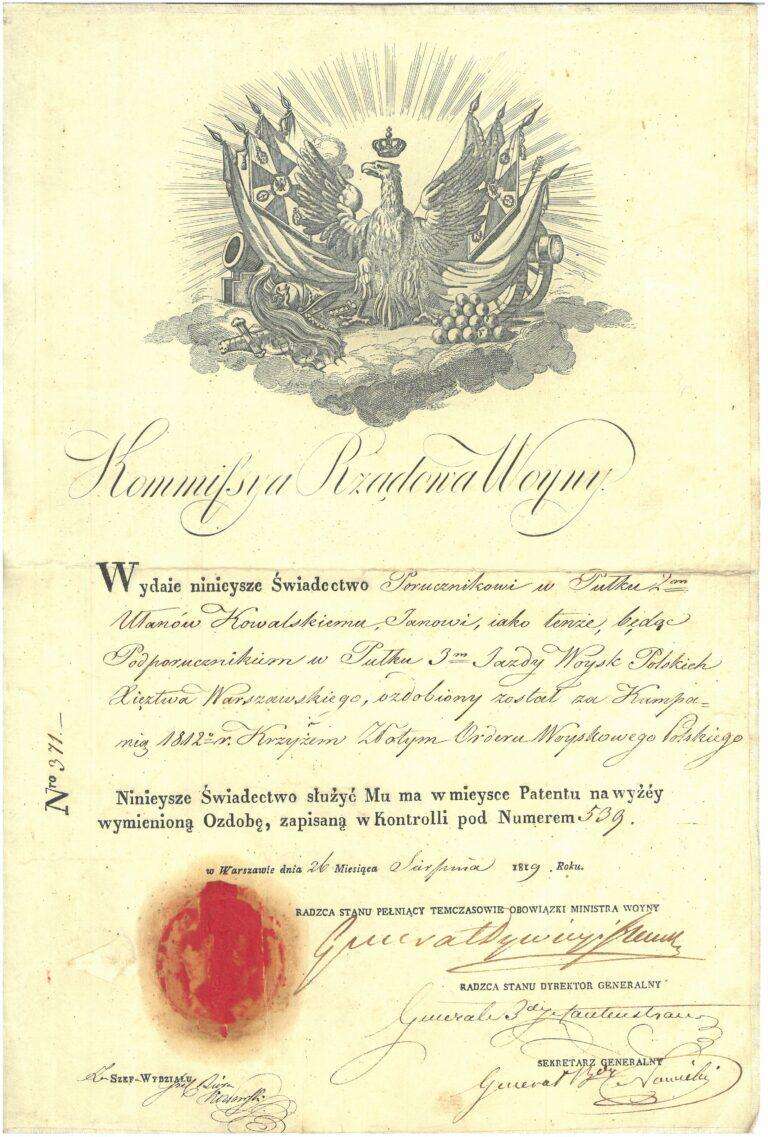 Kommissya Rządowa Woyny.
Wydaie ninieysze Świadectwo Porucznikowi w Pułku 2m
Ułanów Kowalskiemu, Janowi, iako tenże, będąc
Podporucznikiem w Pułku 3m Jazdy Woysk Polskich
Xięztwa Warszawskiego, ozdobiony został za Kampa=
nią 1812o r. Krzyżem Złotym Orderu Woyskowego Polskiego
Nro 371.—
Ninieysze Świadectwo służyć Mu ma w mieysce Patentu na wyżéy
wymienioną Ozdobę, zapisaną w Kontrolli pod Numerem 539.
w Warszawie dnia 26 Miesiąca Sierpnia 1819. Roku.
RADZCA STANU PEŁNIĄCY TEMCZASOWIE OBOWIĄZKI MINISTRA WOYNY
Generał Dywizyi
RADZCA STANU DYREKTOR GENERALNY
Generał
SEKRETARZ GENERALNY
Generał
Za SZEF-WYDZIAŁU